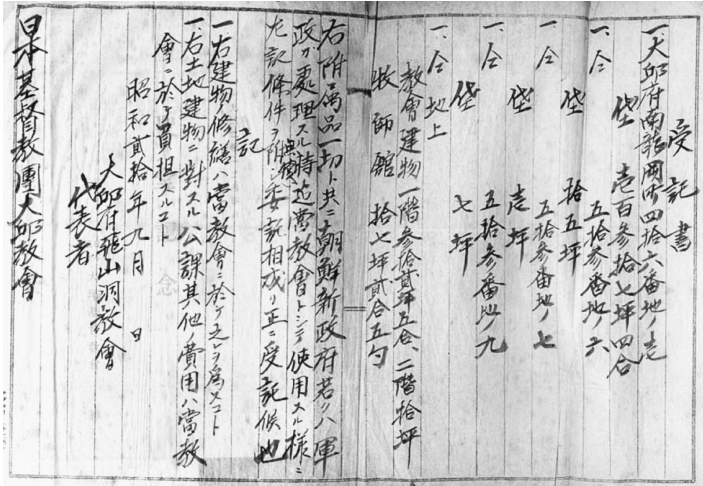 受託書
一、大邱府南龍岡町四拾六番地ノ壱
垈 壱百参拾七坪四合
一、仝 五拾参番地ノ六
垈 拾五坪
一仝 五拾参番地ノ七
垈 壱坪
一、仝 五拾参番地ノ九
垈 七坪
一、仝地上
教會建物一階参拾貳坪五合、二階拾坪
牧師舘 拾七坪貳合五勺
右附属品一切ト共ニ朝鮮新政府若クハ軍
政ガ處理スル時迠當教會トシテ無償使用スル様ニ
左記條件ヲ附シ委託相成リ正ニ受託候也
記
一右建物ノ修繕ハ當教會ニ於テ之レヲ為スコト
一、右土地建物ニ對スル公課其他ノ費用ハ當教
會ニ於テ負担スルコト
昭和貳拾年九月 日
大邱府飛山洞教會
代表者
日本基督教團大邱教會